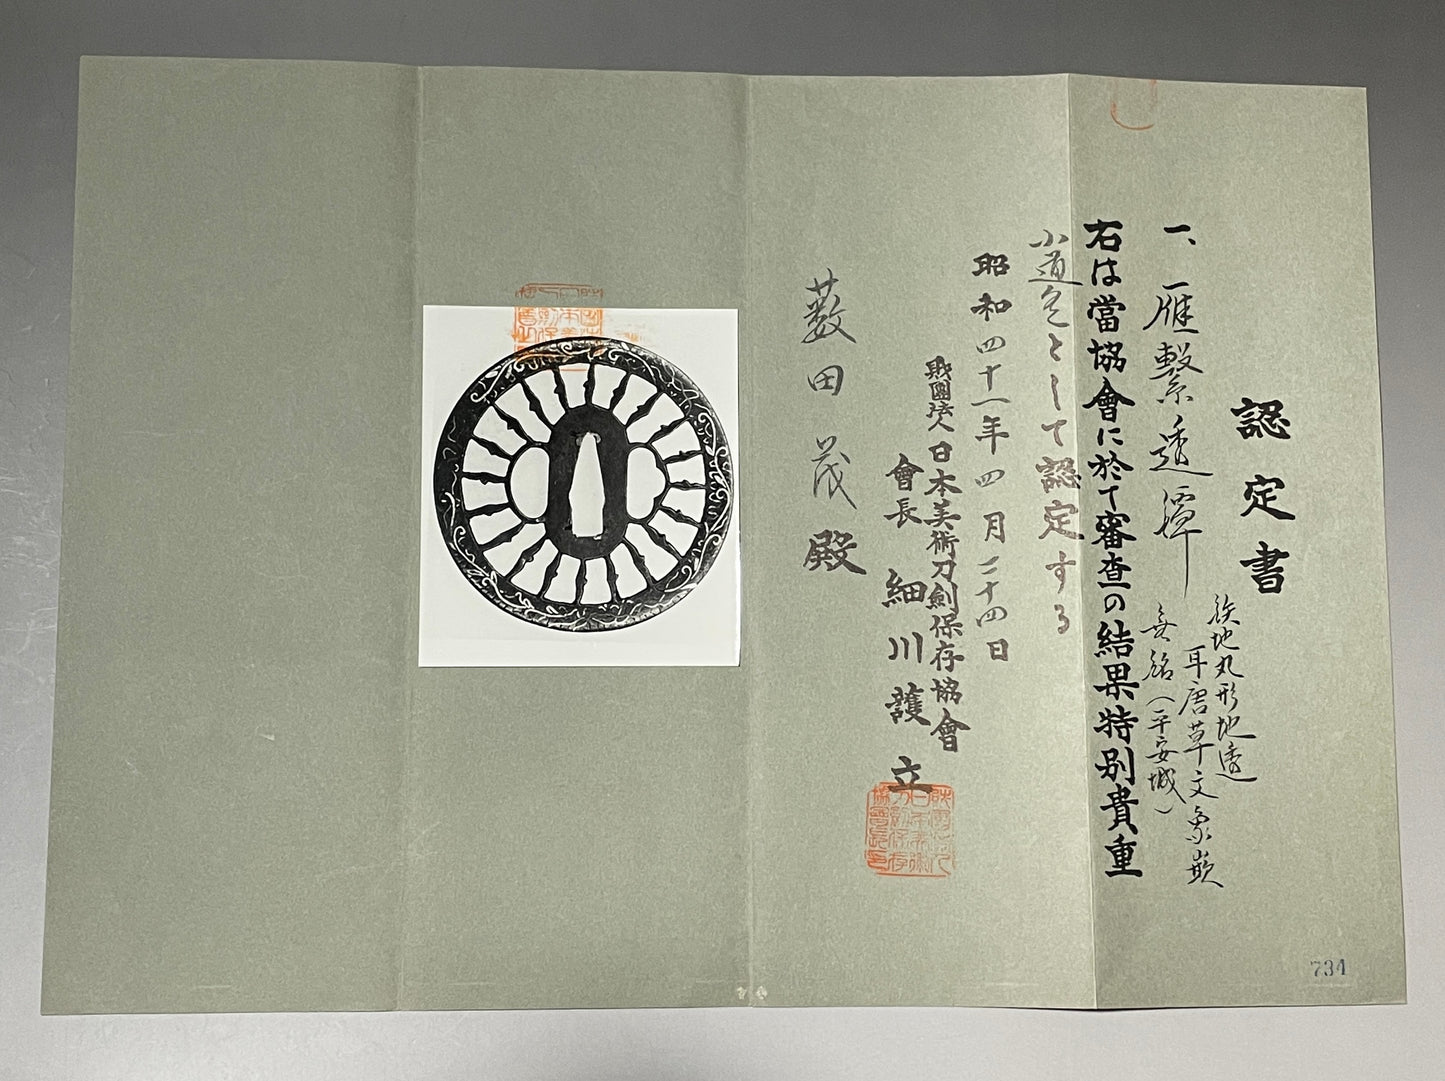 認定書
一、雁繋透鐔
鉄地丸形地透
耳唐草文象嵌
無銘(平安城)
右は當協會に於て審査の結果特別貴重
小道具として認定する
昭和四十一年四月二十四日
財團法人日本美術刀劍保存協會
會長 細川護立
薮田茂殿
734